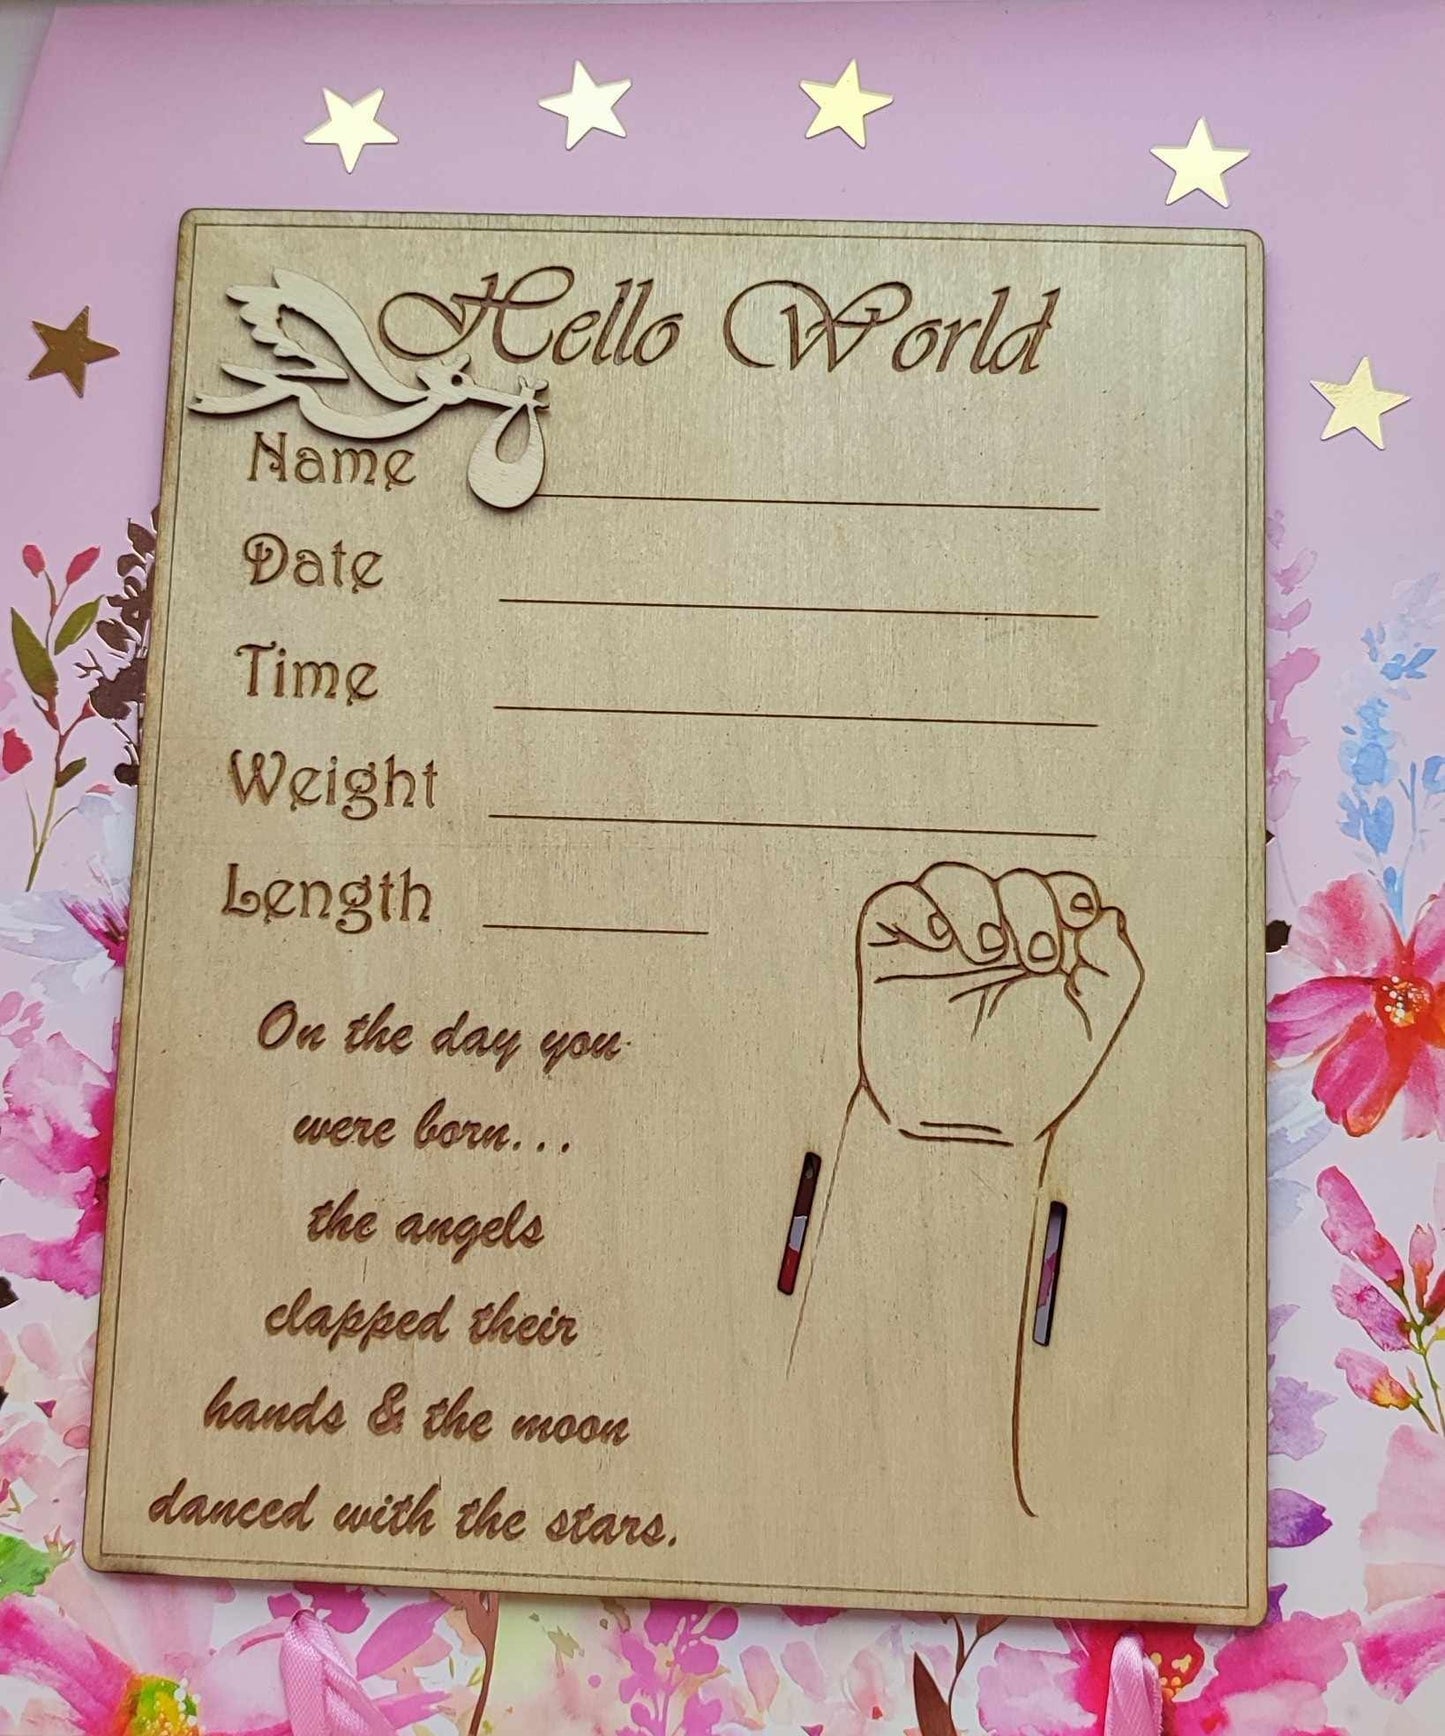 Hello World
Name
Date
Time
Weight
Length
On the day you
were born...
the angels
clapped their
hands & the moon
danced with the stars.